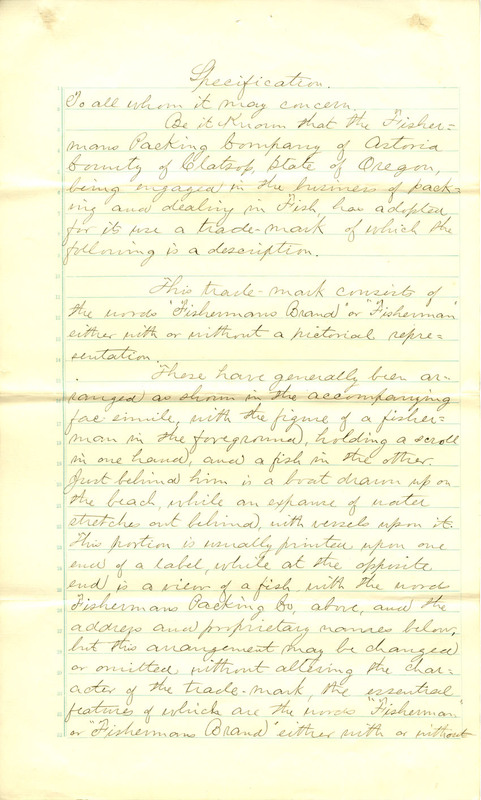 Specification.
To all whom it may concern.
Be it Known that the Fisher=
mans Packing Company of Astoria
County of Clatsop, State of Oregon,
being engaged in the business of pack=
ing and dealing in Fish, has adopted
for its use a trade-mark of which the
following is a description.
This trade-mark consists of
the words "Fishermans Brand" or "Fisherman"
either with or without a pictorial repre=
sentation.
These have generally been ar=
ranged as shown in the accompanying
fac simile, with the figure of a fisher=
man in the foreground, holding a scroll
in one hand, and a fish in the other.
Just behind him is a boat drawn up on
the beach, while an expanse of water
stretches out behind, with vessels upon it.
This portion is usually printed upon one
end of a label, while at the opposite
end is a view of a fish, with the words
Fishermans Packing Co, above, and the
address and proprietary names below,
but this arrangement may be changed
or omitted without altering the char=
acter of the trade-mark, the essential
features of which are the words "Fisherman"
or "Fishermans Brand" either with or without